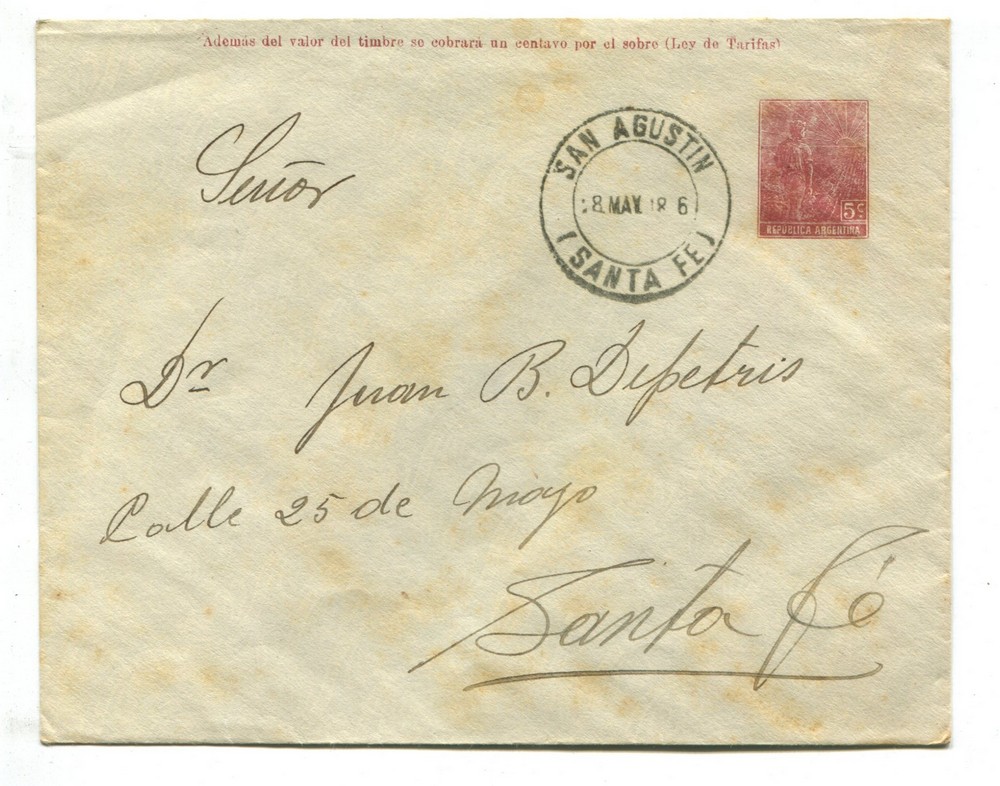 Además del valor del timbre se cobrará un centavo por el sobre (Ley de Tarifas)
SAN AGUSTIN
8 MAY 18 6
(SANTA FE)
5c
REPUBLICA ARGENTINA
Señor
Dr Juan B. Depetris
Calle 25 de Mayo
Santa Fé